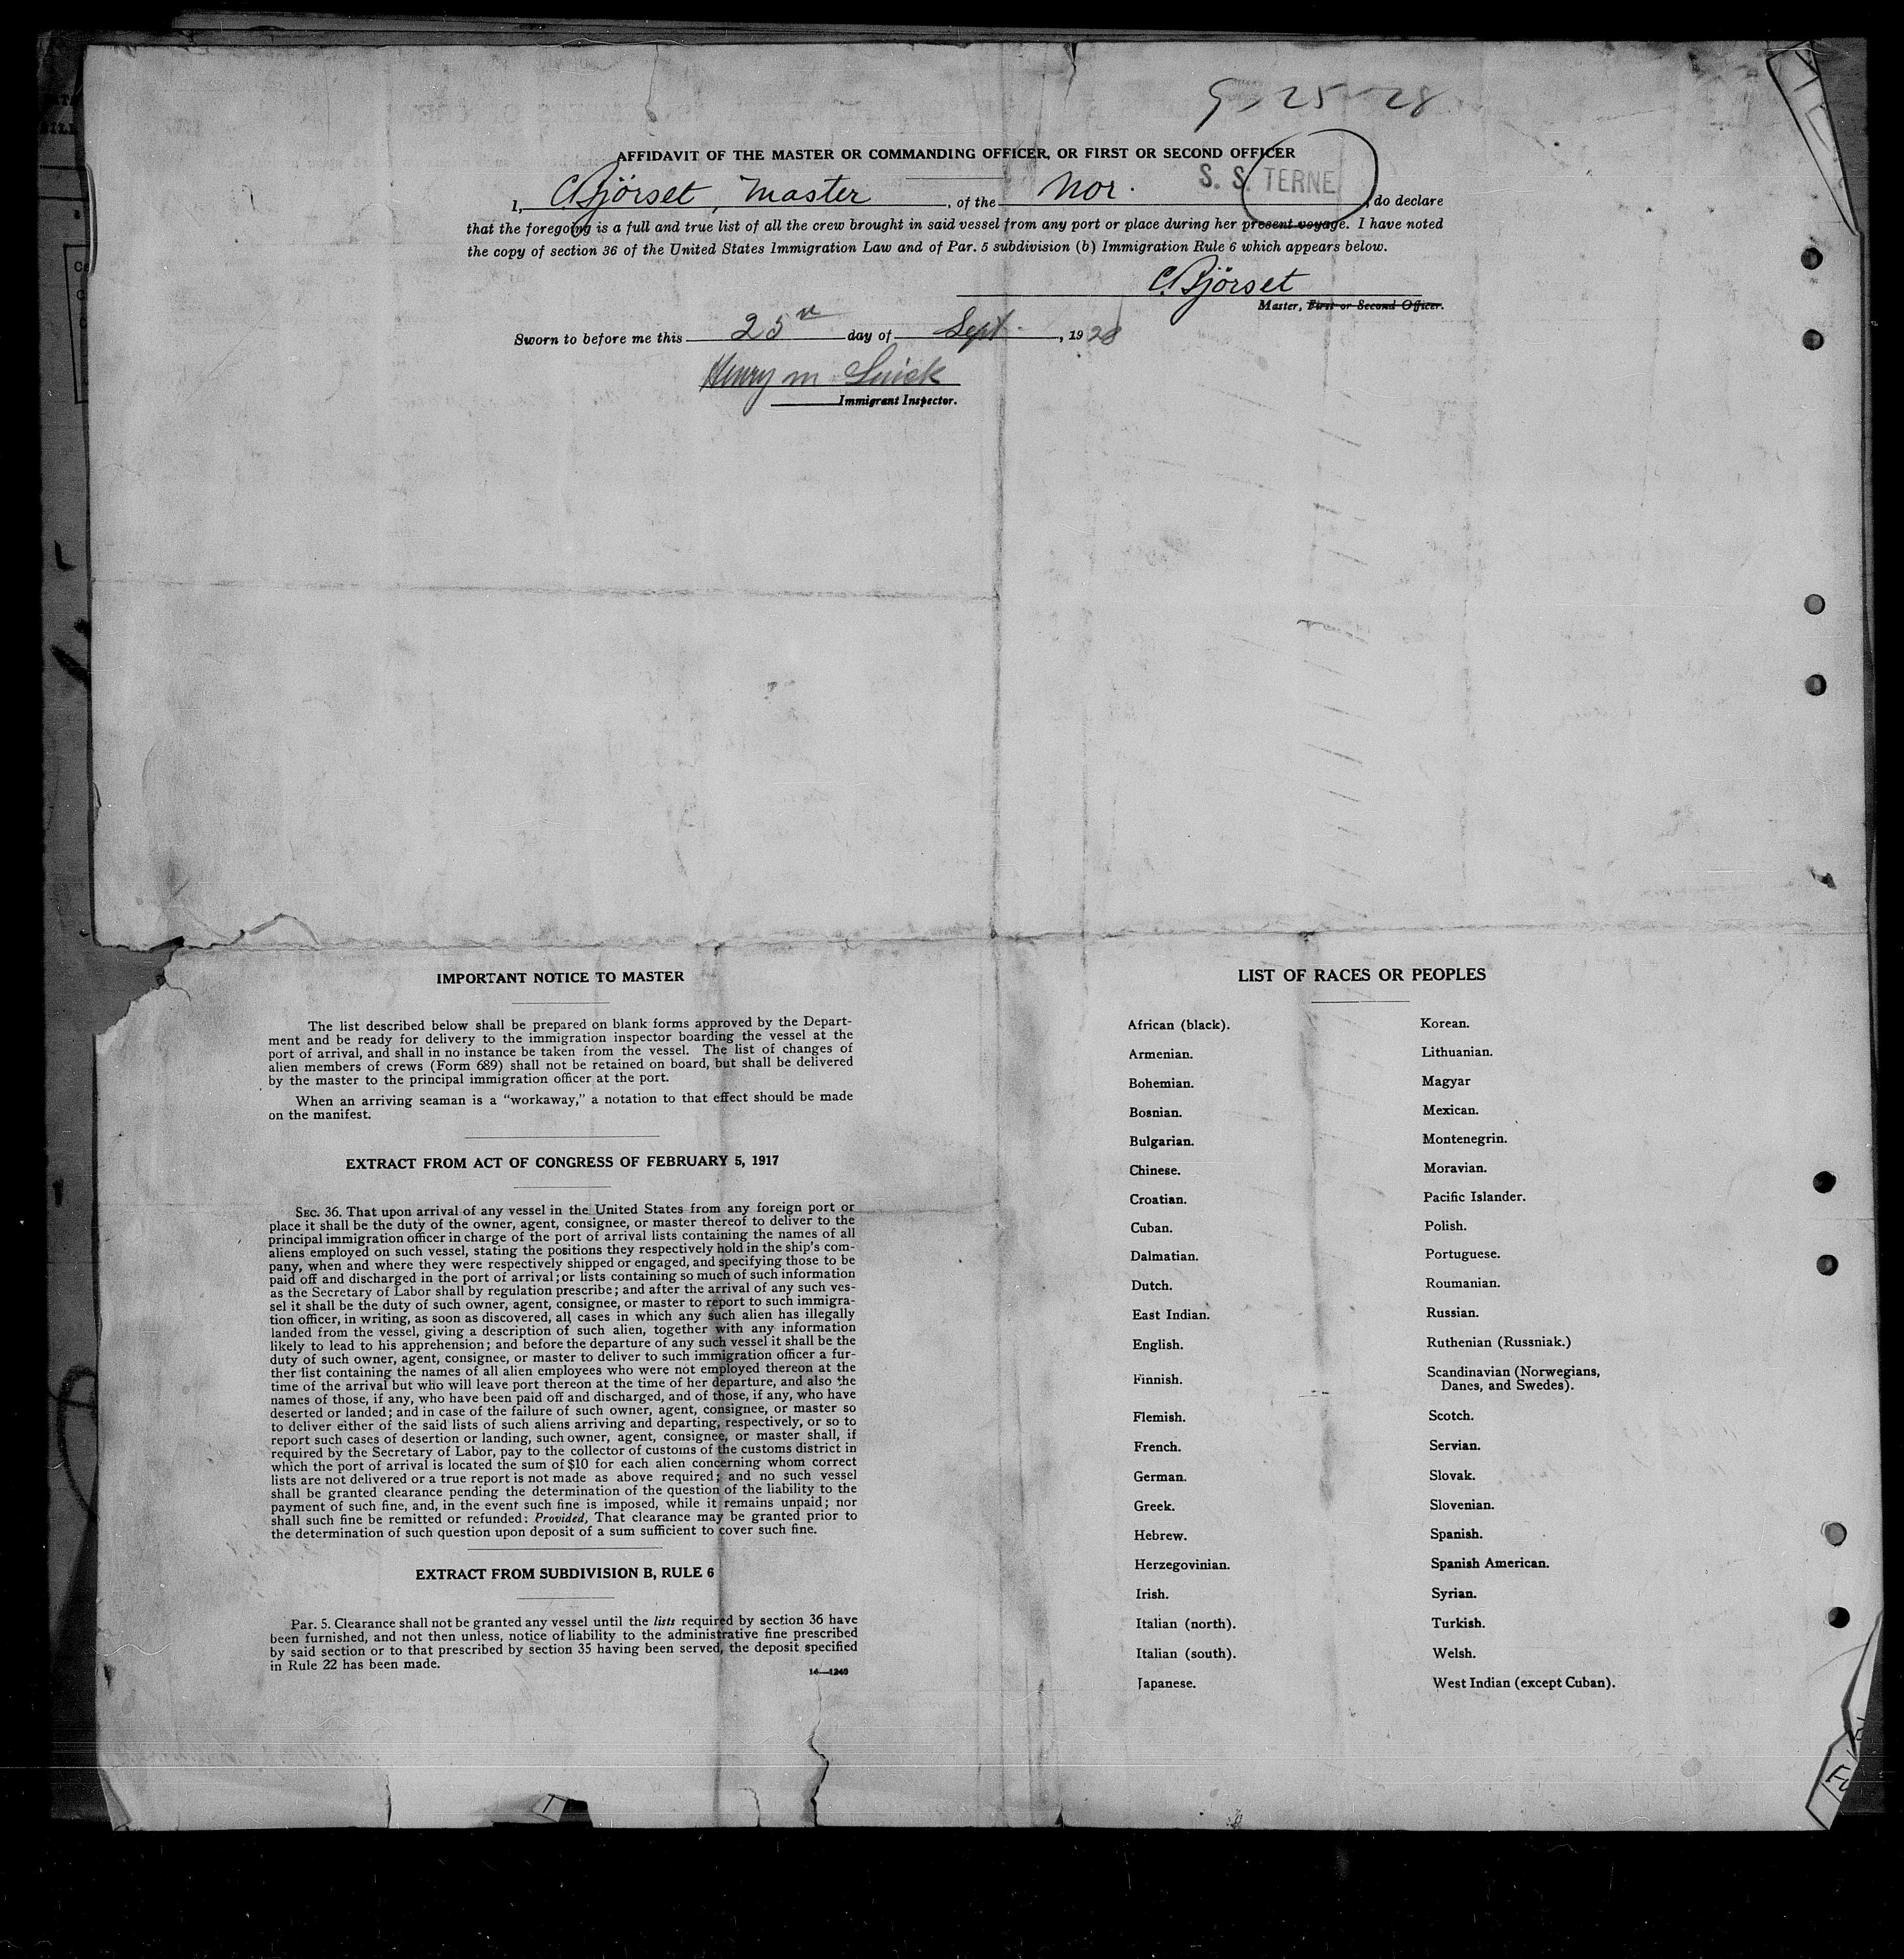 9-25-28
AFFIDAVIT OF THE MASTER OR COMMANDING OFFICER, OR FIRST OR SECOND OFFICER
I, C. Bjórset, Master, of the Nor. S. S. TERNE, do declare
that the foregoing is a full and true list of all the crew brought in said vessel from any port or place during her present voyage. I have noted
the copy of section 36 of the United States Immigration Law and of Par. 5 subdivision (b) Immigration Rule 6 which appears below.
C. Bjórset
Master, First or Second Officer.
Sworn to before me this 25 day of Sept., 1928
Henry M
Immigrant Inspector.
IMPORTANT NOTICE TO MASTER
The list described below shall be prepared on blank forms approved by the Depart-
ment and be ready for delivery to the immigration inspector boarding the vessel at the
port of arrival, and shall in no instance be taken from the vessel. The list of changes of
alien members of crews (Form 689) shall not be retained on board, but shall be delivered
by the master to the principal immigration officer at the port.
When an arriving seaman is a “workaway,” a notation to that effect should be made
on the manifest.
EXTRACT FROM ACT OF CONGRESS OF FEBRUARY 5, 1917
SEC. 36. That upon arrival of any vessel in the United States from any foreign port or
place it shall be the duty of the owner, agent, consignee, or master thereof to deliver to the
principal immigration officer in charge of the port of arrival lists containing the names of all
aliens employed on such vessel, stating the positions they respectively hold in the ship's com-
pany, when and where they were respectively shipped or engaged, and specifying those to be
paid off and discharged in the port of arrival; or lists containing so much of such information
as the Secretary of Labor shall by regulation prescribe; and after the arrival of any such ves-
sel it shall be the duty of such owner, agent, consignee, or master to report to such immigra-
tion officer, in writing, as soon as discovered, all cases in which any such alien has illegally
landed from the vessel, giving a description of such alien, together with any information
likely to lead to his apprehension; and before the departure of any such vessel it shall be the
duty of such owner, agent, consignee, or master to deliver to such immigration officer a fur-
ther list containing the names of all alien employees who were not employed thereon at the
time of the arrival but who will leave port thereon at the time of her departure, and also the
names of those, if any, who have been paid off and discharged, and of those, if any, who have
deserted or landed; and in case of the failure of such owner, agent, consignee, or master so
to deliver either of the said lists of such aliens arriving and departing, respectively, or so to
report such cases of desertion or landing, such owner, agent, consignee, or master shall, if
required by the Secretary of Labor, pay to the collector of customs of the customs district in
which the port of arrival is located the sum of $10 for each alien concerning whom correct
lists are not delivered or a true report is not made as above required; and no such vessel
shall be granted clearance pending the determination of the question of the liability to the
payment of such fine, and, in the event such fine is imposed, while it remains unpaid; nor
shall such fine be remitted or refunded: Provided, That clearance may be granted prior to
the determination of such question upon deposit of a sum sufficient to cover such fine.
EXTRACT FROM SUBDIVISION B, RULE 6
Par. 5. Clearance shall not be granted any vessel until the lists required by section 36 have
been furnished, and not then unless, notice of liability to the administrative fine prescribed
by said section or to that prescribed by section 35 having been served, the deposit specified
in Rule 22 has been made.
14—1240
LIST OF RACES OR PEOPLES
African (black).
Armenian.
Bohemian.
Bosnian.
Bulgarian.
Chinese.
Croatian.
Cuban.
Dalmatian.
Dutch.
East Indian.
English.
Finnish.
Flemish.
French.
German.
Greek.
Hebrew.
Herzegovinian.
Irish.
Italian (north).
Italian (south).
Japanese.
Korean.
Lithuanian.
Magyar
Mexican.
Montenegrin.
Moravian.
Pacific Islander.
Polish.
Portuguese.
Roumanian.
Russian.
Ruthenian (Russniak.)
Scandinavian (Norwegians,
Danes, and Swedes).
Scotch.
Servian.
Slovak.
Slovenian.
Spanish.
Spanish American.
Syrian.
Turkish.
Welsh.
West Indian (except Cuban).